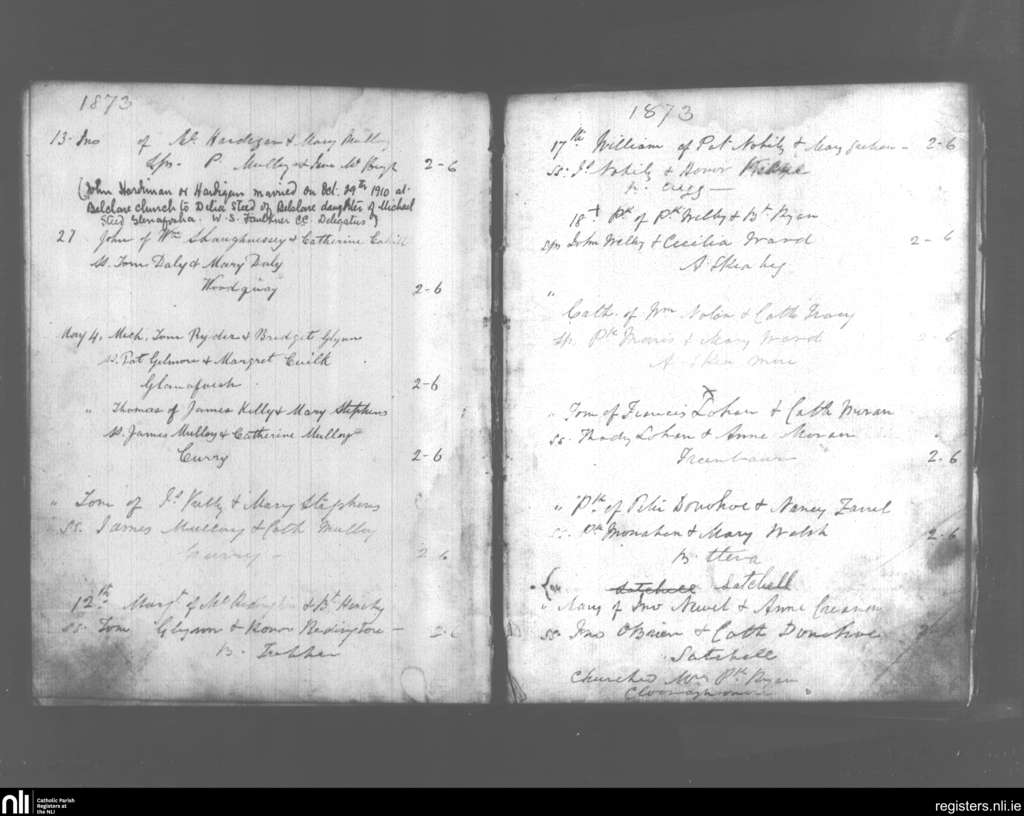 1873
13- Jno of Ml. Hardigan & Mary Mulloy
Sps. P. Mulloy & Mt
2-6
(John Hardiman or Hardigan married on Oct. 29th 1910 at
Belclare church to Delia Steed of Belclare daughter of Michael
Steed Glenafosha. W. S. Faulkner CC. Delegatus)
27 John of Wm Shaughnessey & Catherine Cahill
ss. Tom Daly & Mary Daly
Woodquay 2-6
May 4, Mich. Tom Ryder & Bridget Glynn
ss. Pat Gilmore & Margret Quilk
Glanafoesh. 2-6
" Thomas of James Kelly & Mary Stephens
ss. James Mulloy & Catherine Mulloy
Curry 2-6
" Tom of Js Kelly & Mary Stephens
" ss. James Mulloy & Cath Mulloy
Curry - 2-6
12th Margt of Ml & Bt
ss. Tom Glynn & Honor Redington -
2-6
B.
1873
17th William of Pat Nohily & Mary - 2-6
ss. Js Nohily & Honor
Cregg -
18th Pk of Pk Welby & Bt Ryan
sps John Welby & Cecilia Ward 2-6
A Skeahy
"
Cath. of Wm Nolan & Cath
sps. Pk Morris & Mary Ward 2-6
A
x
" Tom of Francis Lohan & Cath Moran
ss. Thady Lohan & Anne Moran
2-6
" Pk of Peter Donohoe & Nancy
ss. Pk Monahan & Mary Walsh 2-6
B
Satchell Satchell
" Mary of Jno & Anne
ss. Jno O'Brien & Cath Donohoe
Satchell
Churched Mrs Pk Ryan
nli
Catholic Parish
Registers at
the NLI
registers.nli.ie